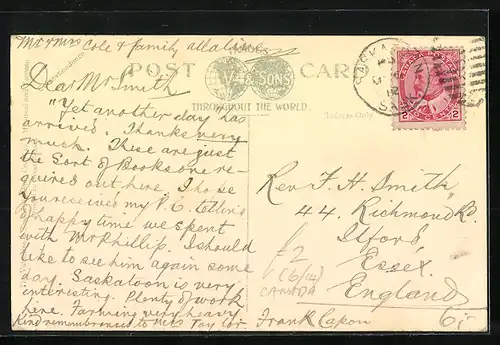 Mr & Mrs Cole & family all alison
Dear Mr Smith
"Yet another day has
arrived". Thanks very
much. These are just
the Sort of Books one re-
quires out here. I hope
you receives my P.C. telling
of happy time we spent
with Mr Phillip. I should
like to see him again some
day. Saskatoon is very
interesting. Plenty of work
here. Farming very heavy
Kind remembrances to Miss Taylor
POST CARD
& SONS
THROUGHOUT THE WORLD.
SASK
2 2
Rev F. H. Smith
44. Richmond Rd.
Ilford
Essex.
England
£2
(6/14)
CANADA
Frank Capon